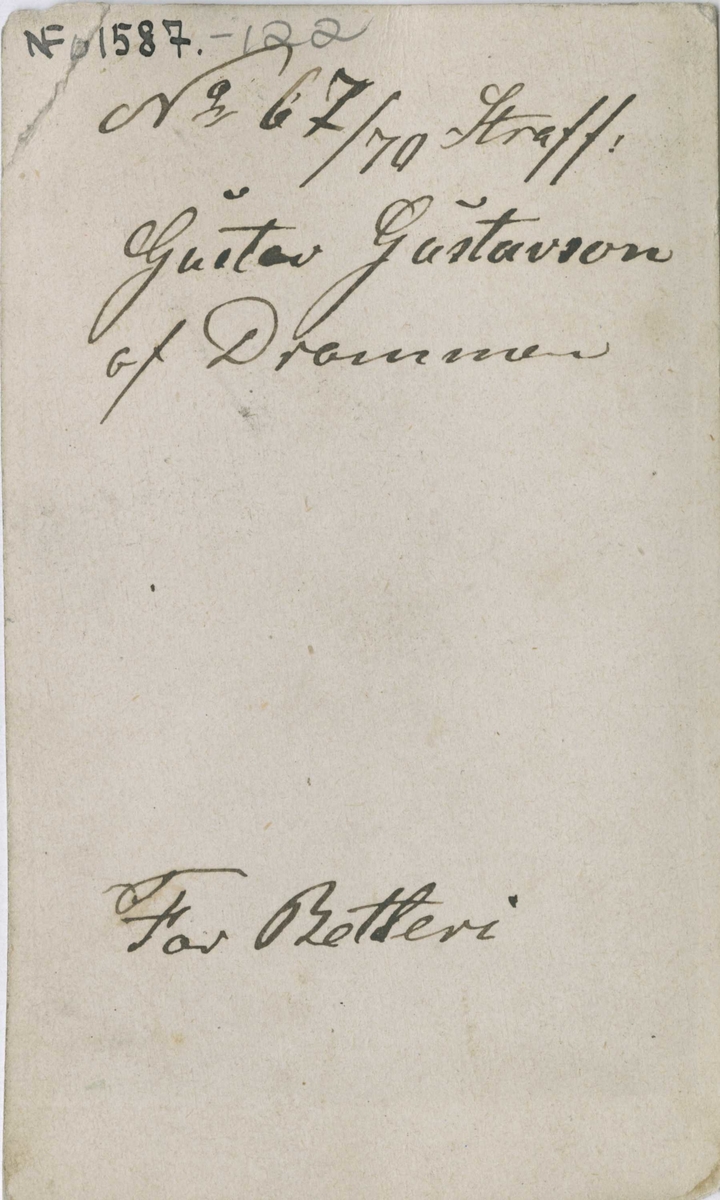 NF. 1587.-122
No 67/70 Straff:
Gustav Gustavson
af Drammen
For Betleri